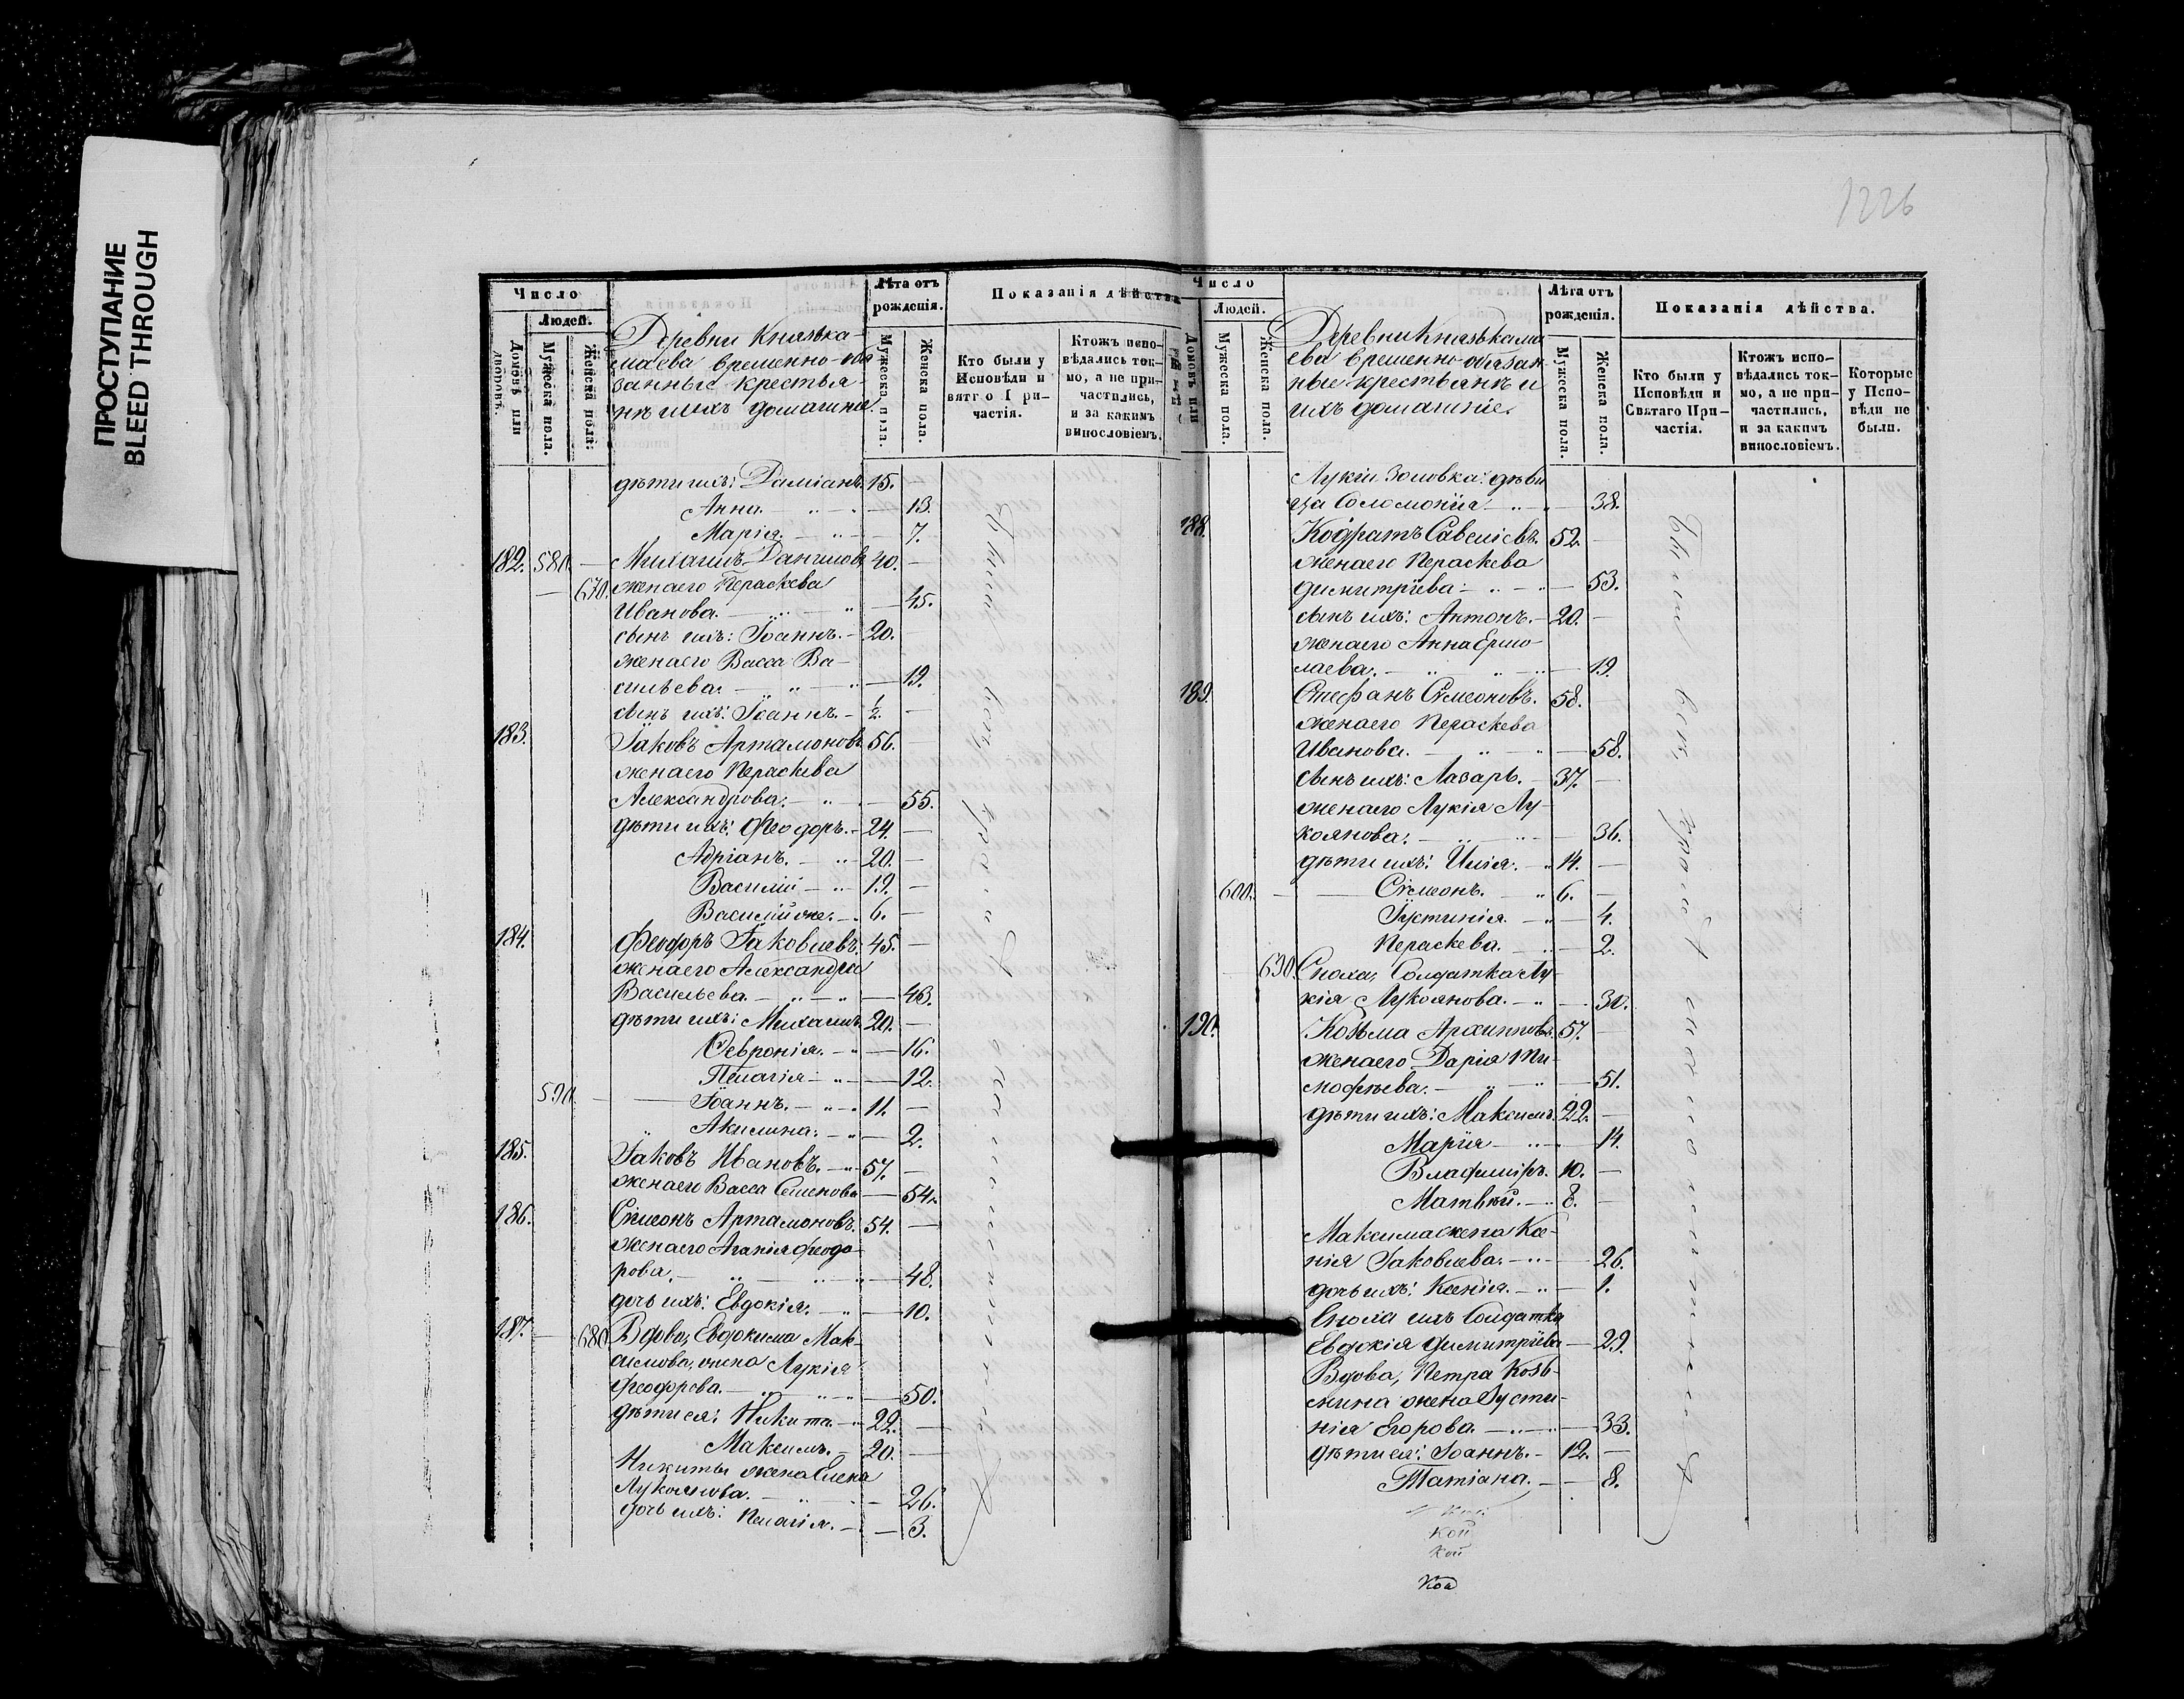 ПРОСТУПАНИЕ
BLEED THROUGH
1226
Число
Людей.
Домовъ или дворовъ.
Мужеска пола.
Женска пола.
Деревни Князька-
маева временно-обя
занные крестья-
нѣ и ихъ домашніе.
Лѣта отъ
рожденія.
Мужеска пола.
Женска пола.
Показанія дѣйства
Кто были у
Исповѣди и
вятго При-
частія.
Ктожъ испо-
вѣдались ток-
мо, а не при-
частились,
и за какимъ
винословіемъ.
дѣти ихъ: Даміанъ. 15. —
Анна. — 13.
Марія. — 7.
182. 580. — Михаилъ Даниловъ 40. —
— 670. жена его Параскева
Иванова. — 45.
сынъ ихъ: Іоаннъ. — 20. —
жена его Васса Ва-
сильева. — 19.
сынъ ихъ: Іоаннъ. — ½. —
183. Іаковъ Артамоновъ 56. —
жена его Параскева
Александрова. — 55.
дѣти ихъ: Феодоръ. — 24. —
Адріанъ. — 20. —
Василій — 19. —
Василій же. — 6. —
184. Феодоръ Іаковлевъ. 45. —
жена его Александра
Васильева. — 43.
дѣти ихъ: Михаилъ. 20. —
Февронія. — 16.
Пелагія — 12.
590. — Іоаннъ. — 11. —
Акилина. — 2.
185. Іаковъ Ивановъ. — 57. —
жена его Васса Семенова — 54.
186. Сѵмеонъ Артамоновъ. 54. —
жена его Агапія Феодо-
рова. — 48.
дочь ихъ: Евдокія. — 10.
187. — 680. Вдова, Евдокима Мак-
симова, жена Лукія
Феодорова. — 50.
дѣти ея: Никита — 22. —
Максимъ. — 20. —
Никиты жена Елена
Лукоянова. — 26.
дочь ихъ: Пелагія. — 3.
Были
всѣ
у
а
Число
Людей.
Домовъ или
Мужеска пола.
Женска пола.
Деревни Князькама
ева временно-обязан
ные крестьянѣ и
ихъ домашніе.
Лѣта отъ
рожденія.
Мужеска пола.
Женска пола.
Показанія дѣйства.
Кто были у
Исповѣди и
Святаго При-
частія.
Ктожъ испо-
вѣдались ток-
мо, а не при-
частились,
и за какимъ
винословіемъ.
Которые
у Испо-
вѣди не
были.
Лукіи золовка: дѣви
ца Соломонія — 38.
188. Кодратъ Савеліевъ. 52. —
жена его Параскева
Димитріева — 53.
сынъ ихъ: Антонъ. — 20. —
жена его Анна Ермо-
лаева. — 19.
189. Стефанъ Сѵмеоновъ. 58. —
жена его Параскева
Иванова. — 58.
сынъ ихъ: Лазарь. — 37. —
жена его Лукія Лу-
коянова: — 36.
дѣти ихъ: Илія. — 14. —
600. — Сѵмеонъ. — 6. —
Іустинія. — 4.
Параскева. — 2.
— 690. Сноха, Солдатка Лу-
кія Лукоянова. — 30.
190. Козьма Архиповъ. 57. —
жена его Дарія Ти-
мофѣева. — 51.
дѣти ихъ: Максимъ. 22. —
Марія — 14.
Владиміръ. 10. —
Матвѣй. — 8. —
Максима жена Ксе-
нія Іаковлева. — 26.
дочь ихъ: Ксенія. — 1.
Сноха ихъ Солдатка
Евдокія Димитріева — 29.
Вдова, Петра Козь-
мина жена Іусти-
нія Егорова. — 33.
дѣти ея: Іоаннъ. — 12. —
Татіана. — 8.
Были
всѣ
кой
кой
кой
коа